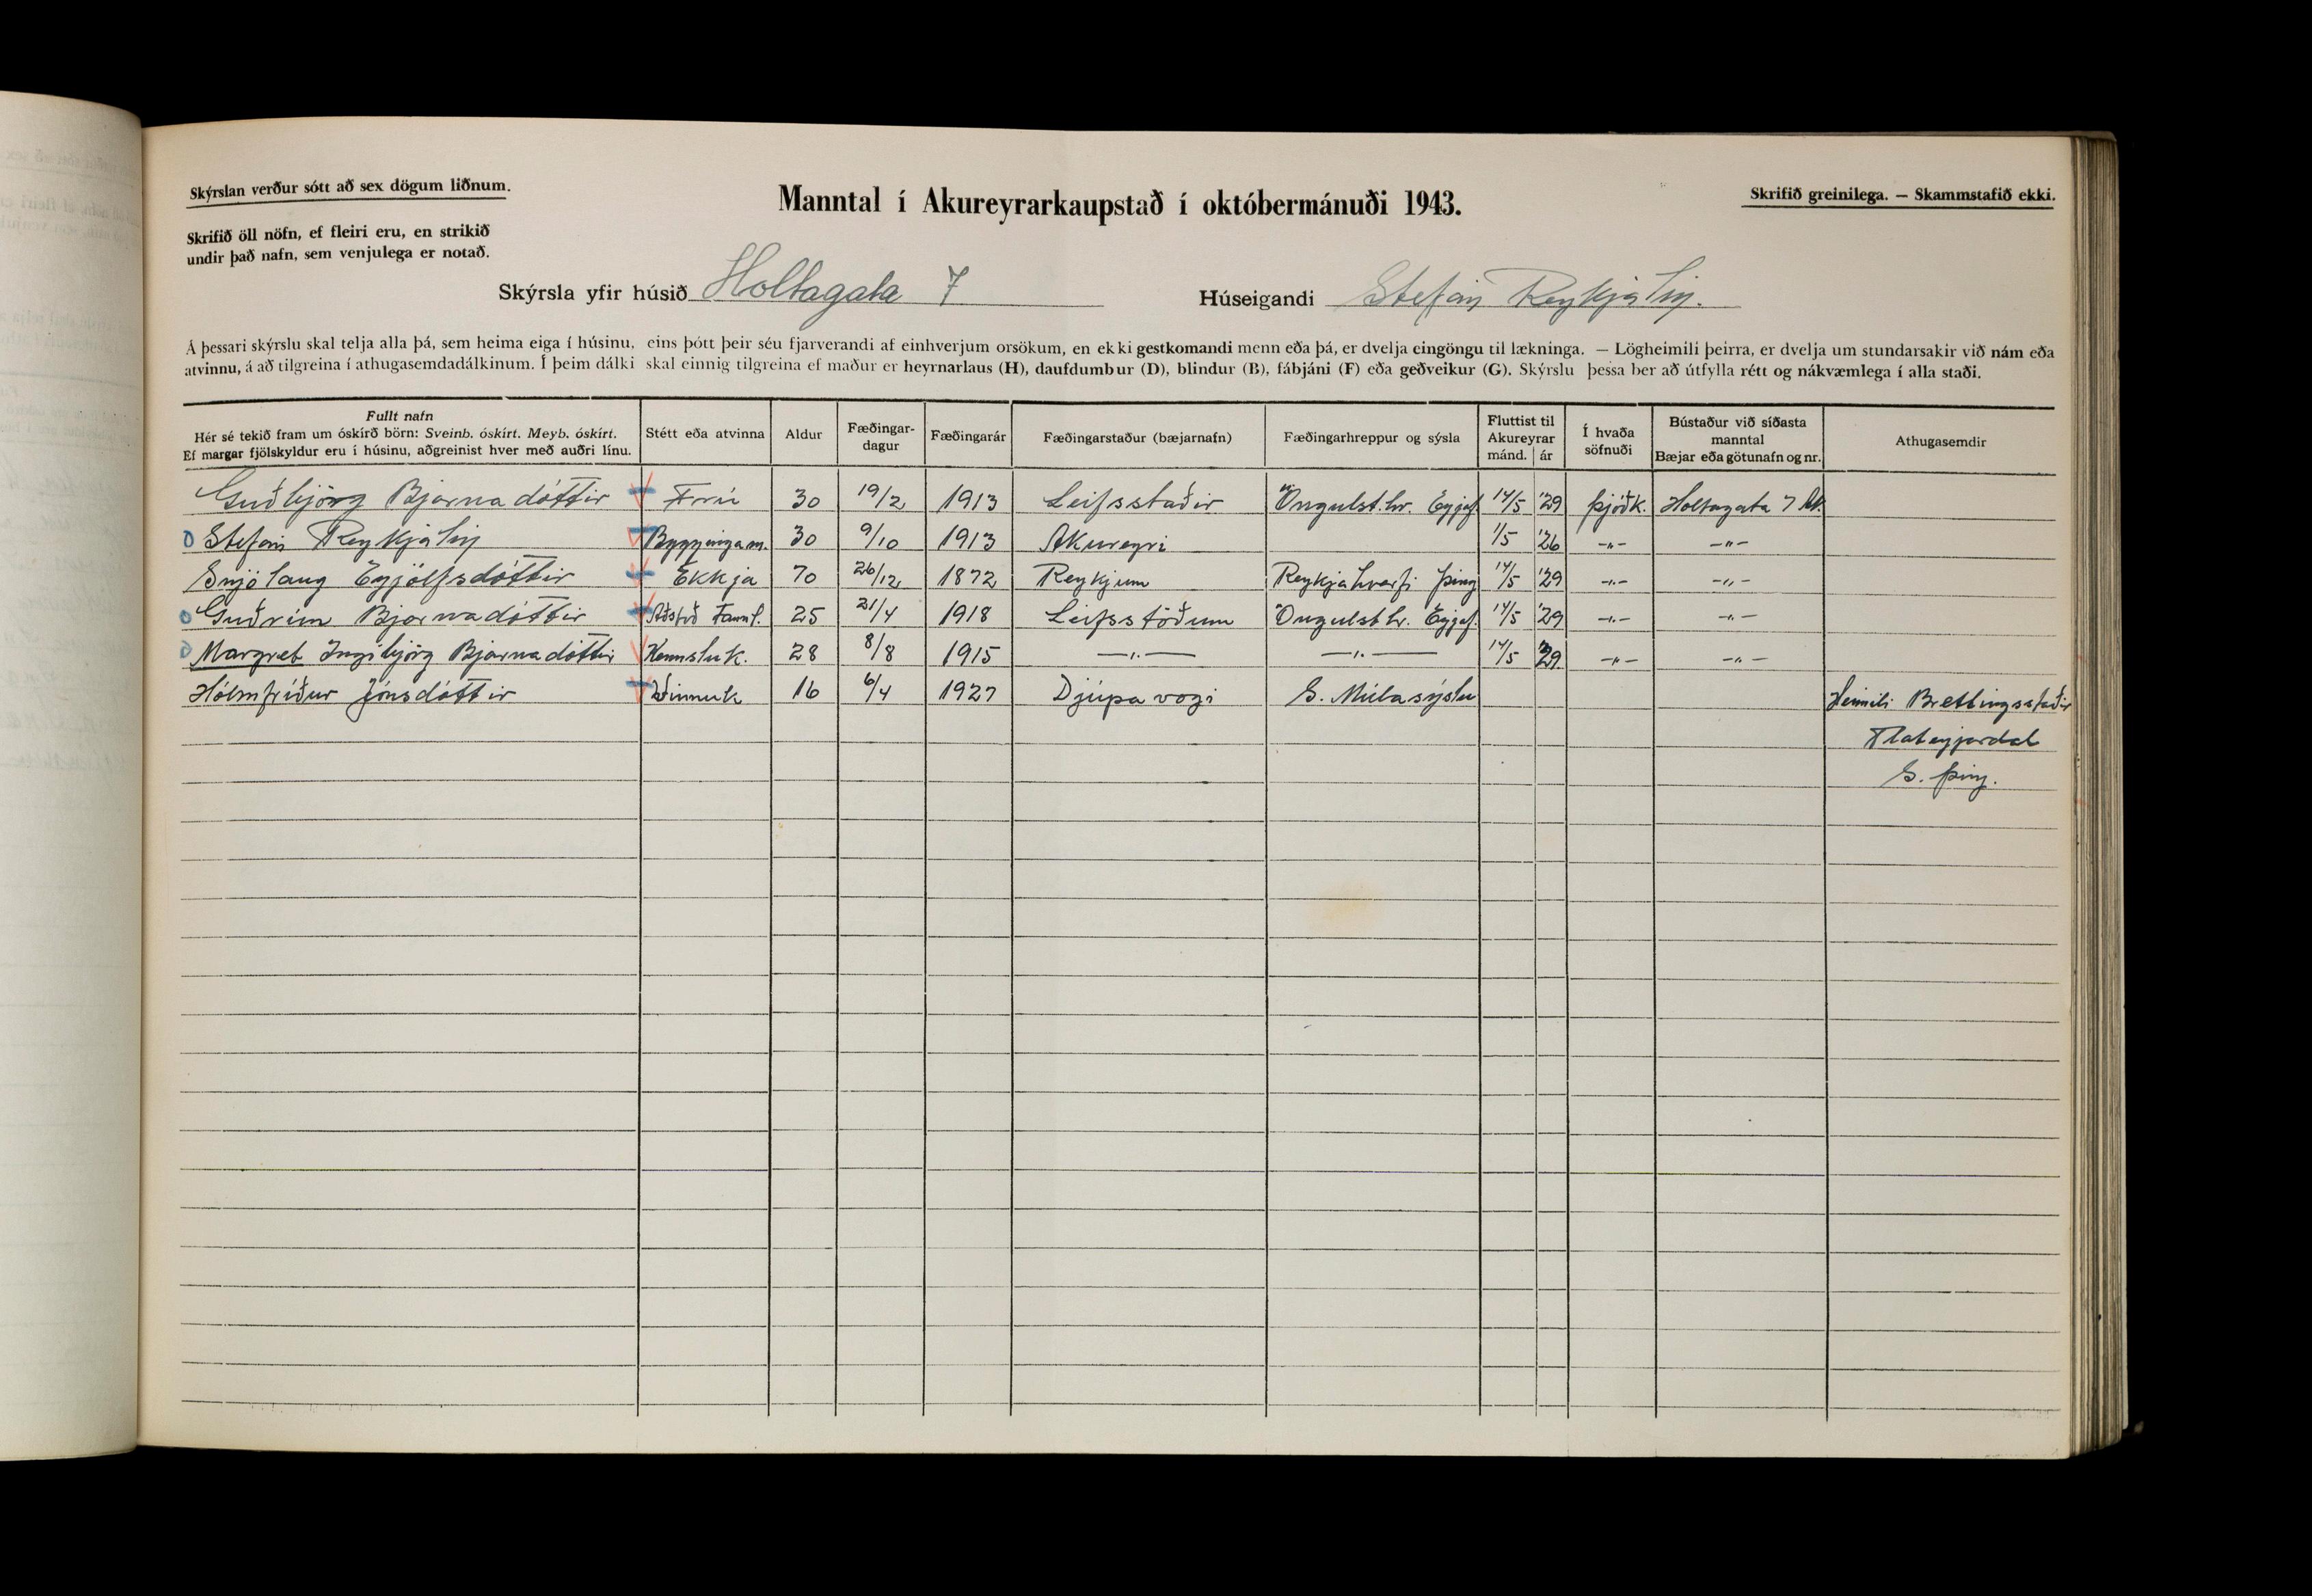 Skýrslan verður sótt að sex dögum liðnum.
Manntal í Akureyrarkaupstað í októbermánuði 1943.
Skrifið greinilega. — Skammstafið ekki.
Skrifið öll nöfn, ef fleiri eru, en strikið
undir það nafn, sem venjulega er notað.
Skýrsla yfir húsið Holtagata 7 Húseigandi Stefán Reykjalín.
Á þessari skýrslu skal telja alla þá, sem heima eiga í húsinu, eins þótt þeir séu fjarverandi af einhverjum orsökum, en ekki gestkomandi menn eða þá, er dvelja eingöngu til lækninga. — Lögheimili þeirra, er dvelja um stundarsakir við nám eða
atvinnu, á að tilgreina í athugasemdadálkinum. Í þeim dálki skal einnig tilgreina ef maður er heyrnarlaus (H), daufdumbur (D), blindur (B), fábjáni (F) eða geðveikur (G). Skýrslu þessa ber að útfylla rétt og nákvæmlega í alla staði.
Fullt nafn
Hér sé tekið fram um óskírð börn: Sveinb. óskírt. Meyb. óskírt.
Ef margar fjölskyldur eru í húsinu, aðgreinist hver með auðri línu.
Stétt eða atvinna
Aldur
Fæðingar-
dagur
Fæðingarár
Fæðingarstaður (bæjarnafn)
Fæðingarhreppur og sýsla
Fluttist til
Akureyrar
mánd. ár
Í hvaða
söfnuði
Bústaður við síðasta
manntal
Bæjar eða götunafn og nr.
Athugasemdir
Guðbjörg Bjarnadóttir Frú 30 19/2 1913 Leifsstaðir Öngulst.hr. Eyjaf. 14/5 '29 Þjóðk. Holtagata 7
Stefán Reykjalín Byggingam. 30 9/10 1913 Akureyri 1/5 '26 -"- -"-
Snjólaug Eyjólfsdóttir Ekkja 70 26/12 1872 Reykjum Reykjahverfi Þing 14/5 '29 -"- -"-
Guðrún Bjarnadóttir Aðstoð Tannl. 25 21/4 1918 Leifsstöðum Öngulst hr. Eyjaf. 14/5 '29 -"- -"-
Margret Ingibjörg Bjarnadóttir Kennsluk. 28 8/8 1915 -"- -"- 14/5 '29 -"- -"-
Hólmfríður Jónsdóttir Vinnuk 16 6/4 1927 Djúpavogi S. Múlasýslu Heimili Brettingsstaðir
Flateyjardal
S. Þing.